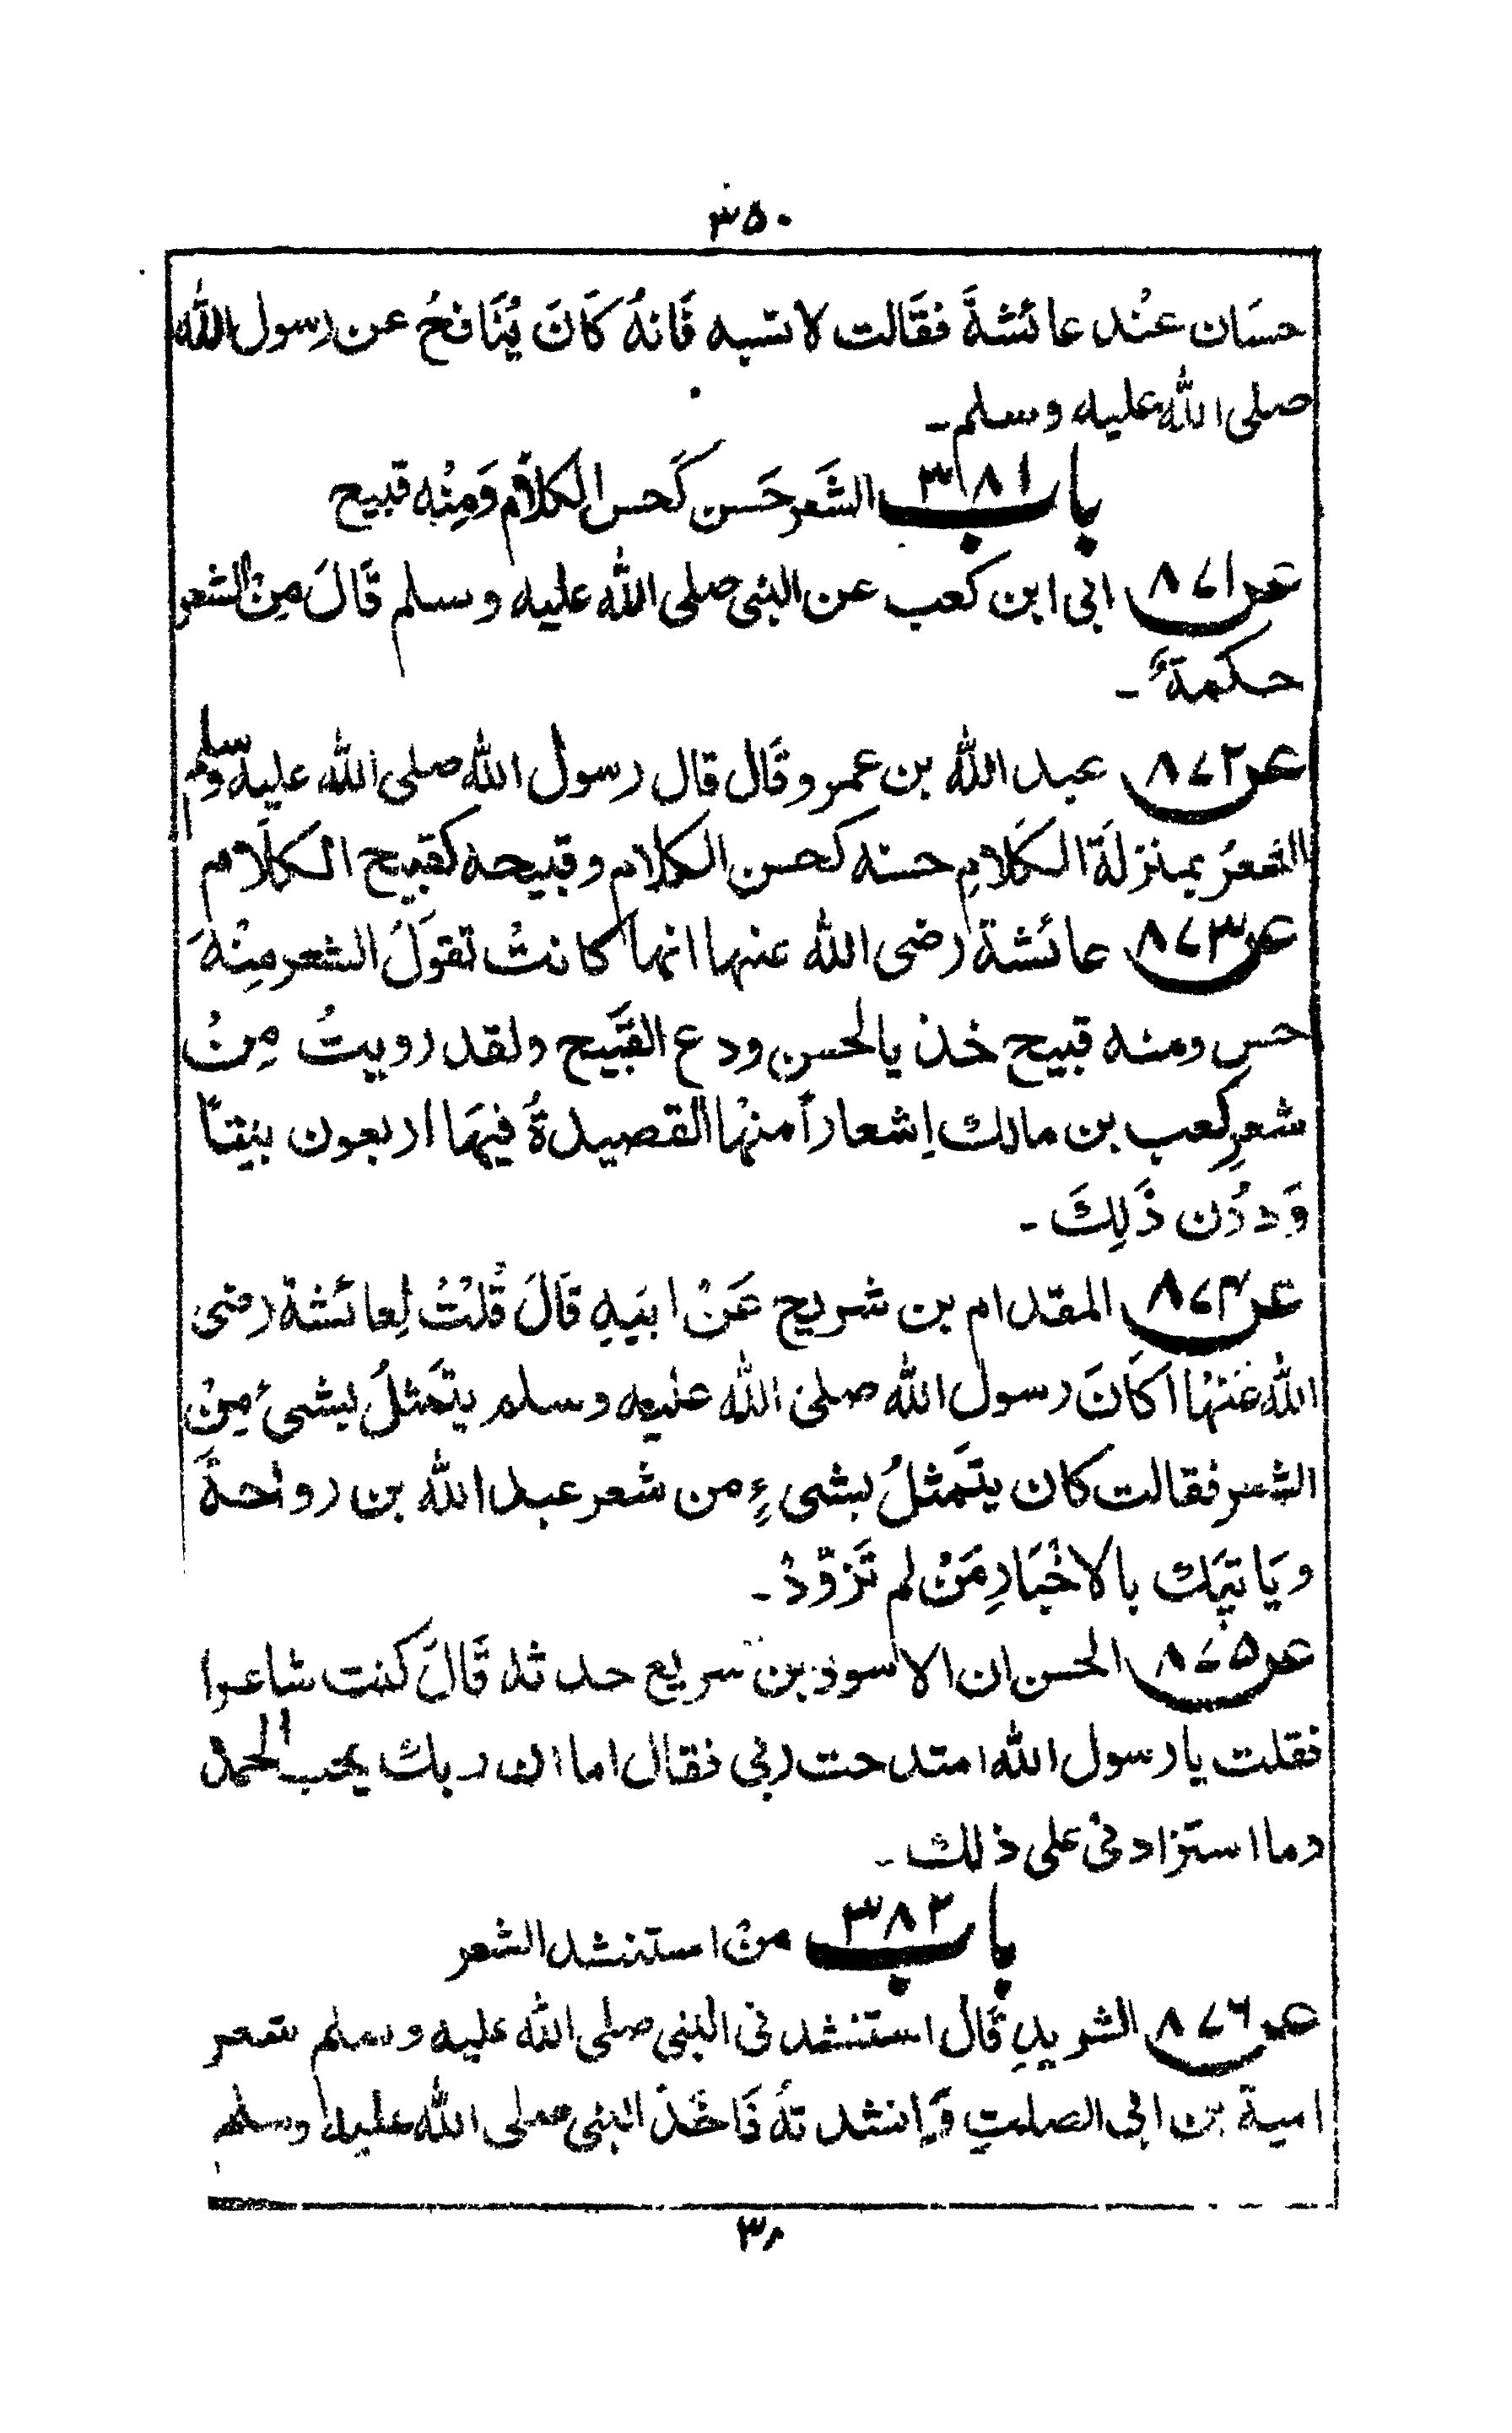 ۳۵۰
حسَان عنْد عائشةَ فقَالت لا تسبه فَانهُ كَانَ يُنَافحُ عن رسول الله
صلى الله عليه وسلم۔
باب ۳۸۱ الشَعر حَسن كَحسن الكلام وَمِنْه قبيح
عن ۸۷۱ ابى ابن كعب عن النبى صلى الله عليه وسلم قَالَ مِنْ الشعر
حكمةٌ ۔
عن ۸۷۲ عبد الله بن عمرو قَال قال رسول الله صلى الله عليه وسلم
الشعرُ بمنزلَة الكَلامِ حسنه كحسن الكلام وقبيحه كقبيح الكلام
عن ۸۷۳ عائشة رضى الله عنها انها كانتْ تقولُ الشعر مِنْهَ
حسن ومنه قبيح خذ بالحسن ودع القَبيح ولقد رويتُ مِنْ
شعرِ كعب بن مالك اِشعاراً منْها القصيدةُ فيهَا اربعون بيْتاً
وَدُدُن ذَلِكَ ۔
عن ۸۷۴ المقدام بن شريح عَنْ ابيَهِ قَالَ قُلْتُ لِعائشة رضى
الله عَنْهَا اَكَانَ رسول الله صلى الله عليه وسلم يتَمثلُ بشىءٍ مِنْ
الشعر فقالت كان يتَمثلُ بشىءٍ من شعر عبد الله بن رواحةَ
ويَاتيَك بالاخْبَارِ مَنْ لم تَزوّدْ ۔
عن ۸۷۵ الحسن ان الاسود بن سريع حدثه قَالَ كنت شاعرا
فقلت يا رسول الله امتدحت ربى فقال اما ان ربك يحب الحمد
وما استزادنى على ذلك ۔
باب ۳۸۲ منْ استنشد الشعر
عن ۸۷۶ الشريدِ قَال استنشدنى النبى صلى الله عليه وسلم شعر
امية بن ابى الصلتِ وَاِنشدتهُ فَاخَذَ النبى صلى الله عليه وسلم